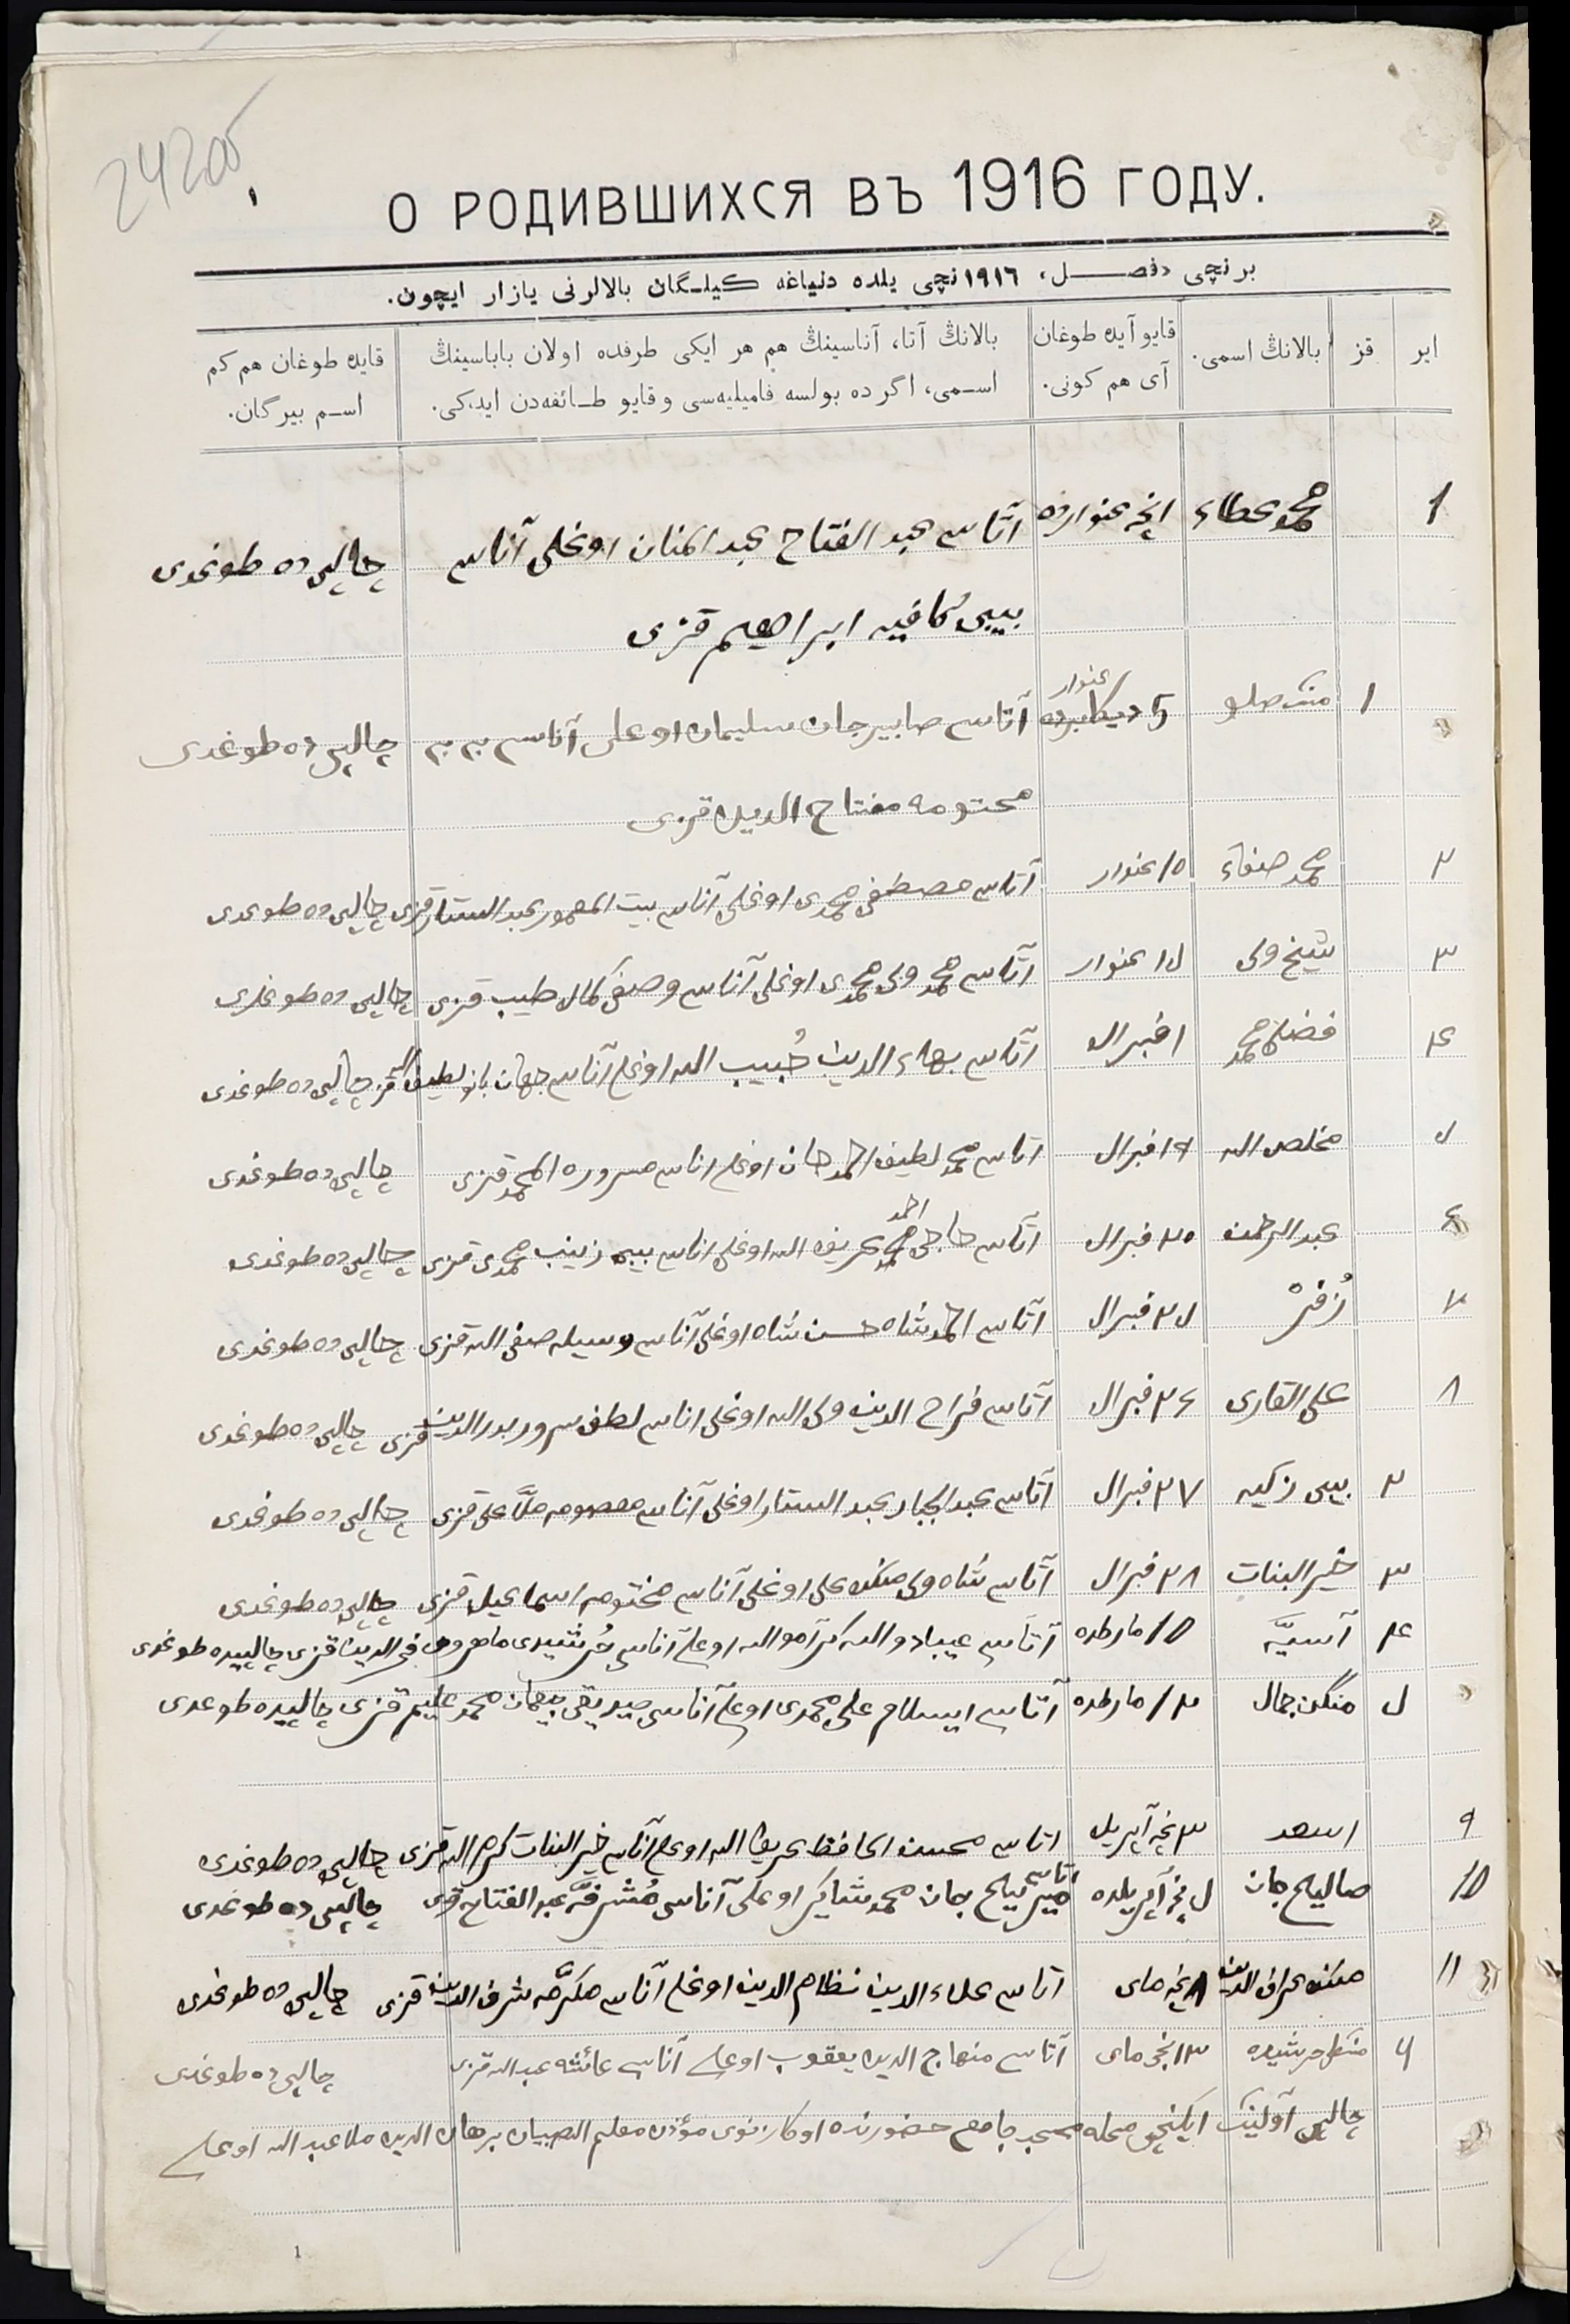 24205
О РОДИВШИХСЯ ВЪ 1916 ГОДУ.
برنچی «فصل»، ١٩١٦ نچی یلده دنیاغه کیلگان بالالرنی یازار ایچون.
ایر قز بالانڭ اسمی. قایو آیده طوغان آی هم کونی. بالانڭ آتا، آناسینڭ هم هر ایکی طرفده اولان باباسینڭ اسمی، اگرده بولسه فامیلیه‌سی و قایو طائفه‌دن ایدکی. قایده طوغان هم کم اسم بیرگان.
١ محمد عطاء انچی عنوارده آتاسی عبد الفتاح عبد المنان اوغلی آناسی چالپی ده طوغدی
بیبی کافیه ابراهیم قزی
١ منك صلو 5 دیکابرده عنوار آتاسی صابیرجان سلیمان اوغلی آناسی بی بی چالپی ده طوغدی
محتومه مفتاح الدین قزی
٢ محمد صفاء ١٥ عنوار آتاسی مصطفی محمدی اوغلی آناسی بیت المعمور عبد الستار قزی چالپی ده طوغدی
٣ شیخ ولی ١٥ عنوار آتاسی محمد ولی محمدی اوغلی آناسی وصفی کمال طیب قزی چالپی ده طوغدی
٤ فضل محمد ١ فبرال آتاسی بهاء الدین حُبیب الله اوغلی آناسی جهان بانو لطیف الله قزی چالپی ده طوغدی
٥ مخلص الله ١٢ فبرال اتاسی محمد لطیف احمد جان اوغلی اناسی مسروره المحمد قزی چالپی ده طوغدی
٦ عبد الرحمن ٢٠ فبرال آتاسی حاجی احمد عریف الله اوغلی اناسی بیبی زینب محمدی قزی چالپی ده طوغدی
٧ زُفرْ ٢٥ فبرال آتاسی احمد شاه حسن شاه اوغلی آناسی وسیله صفی الله قزی چالپی ده طوغدی
٨ علی القاری ٢٦ فبرال آتاسی فراح الدین ولی الله اوغلی اناسی لطف سرور بدر الدین قزی چالپی ده طوغدی
٢ بیبی زکیه ٢٧ فبرال آتاسی عبد الجبار عبد الستار اوغلی آناسی معصومه ملّا علی قزی چالپی ده طوغدی
٣ خیر البنات ٢٨ فبرال آتاسی شاه ولی منكه علی اوغلی آناسی مختومه اسماعیل قزی چالپی ده طوغدی
٤ آسیَّه ١٥ مارطده آتاسی عیبادوالله کرآموالله اوغلی آناسی خُرشیدی ماهروی فخر الدین قزی چالپیده طوغدی
٥ منكن جمال ١٢ مارطده آتاسی ایسلام علی محمدی اوغلی آناسی صیدیقی جیهان محمد علیم قزی چالپیده طوغدی
٩ اسعد ٣ نچی آپریل اتاسی محسن الحافظ عریف الله اوغلی آناسی خیر البنات کرام الله قزی چالپی ده طوغدی
10 صالیح جان ٥ نچی آپریلده اتاسی میر صلیح جان محمد شاکر اوغلی آناسی مُشرفَّه عبد الفتاح قزی چالپی ده طوغدی
11 منكه عراف الدین ٨ نچی مای اتاسی علاء الدین نظام الدین اوغلی آناسی مکرَّمه شرف الدین قزی چالپی ده طوغدی
٦ منكل خرشیده ١٣ نچی مای آتاسی منهاج الدین یعقوب اوغلی آناسی عائشه عبد الله قزی چالپی ده طوغدی
چالپی آولینك ایكنچی محله مسجد جامع حضورنده اوكازنوی مؤذن معلم الصبیان برهان الدین ملا عبد الله اوغلی
1